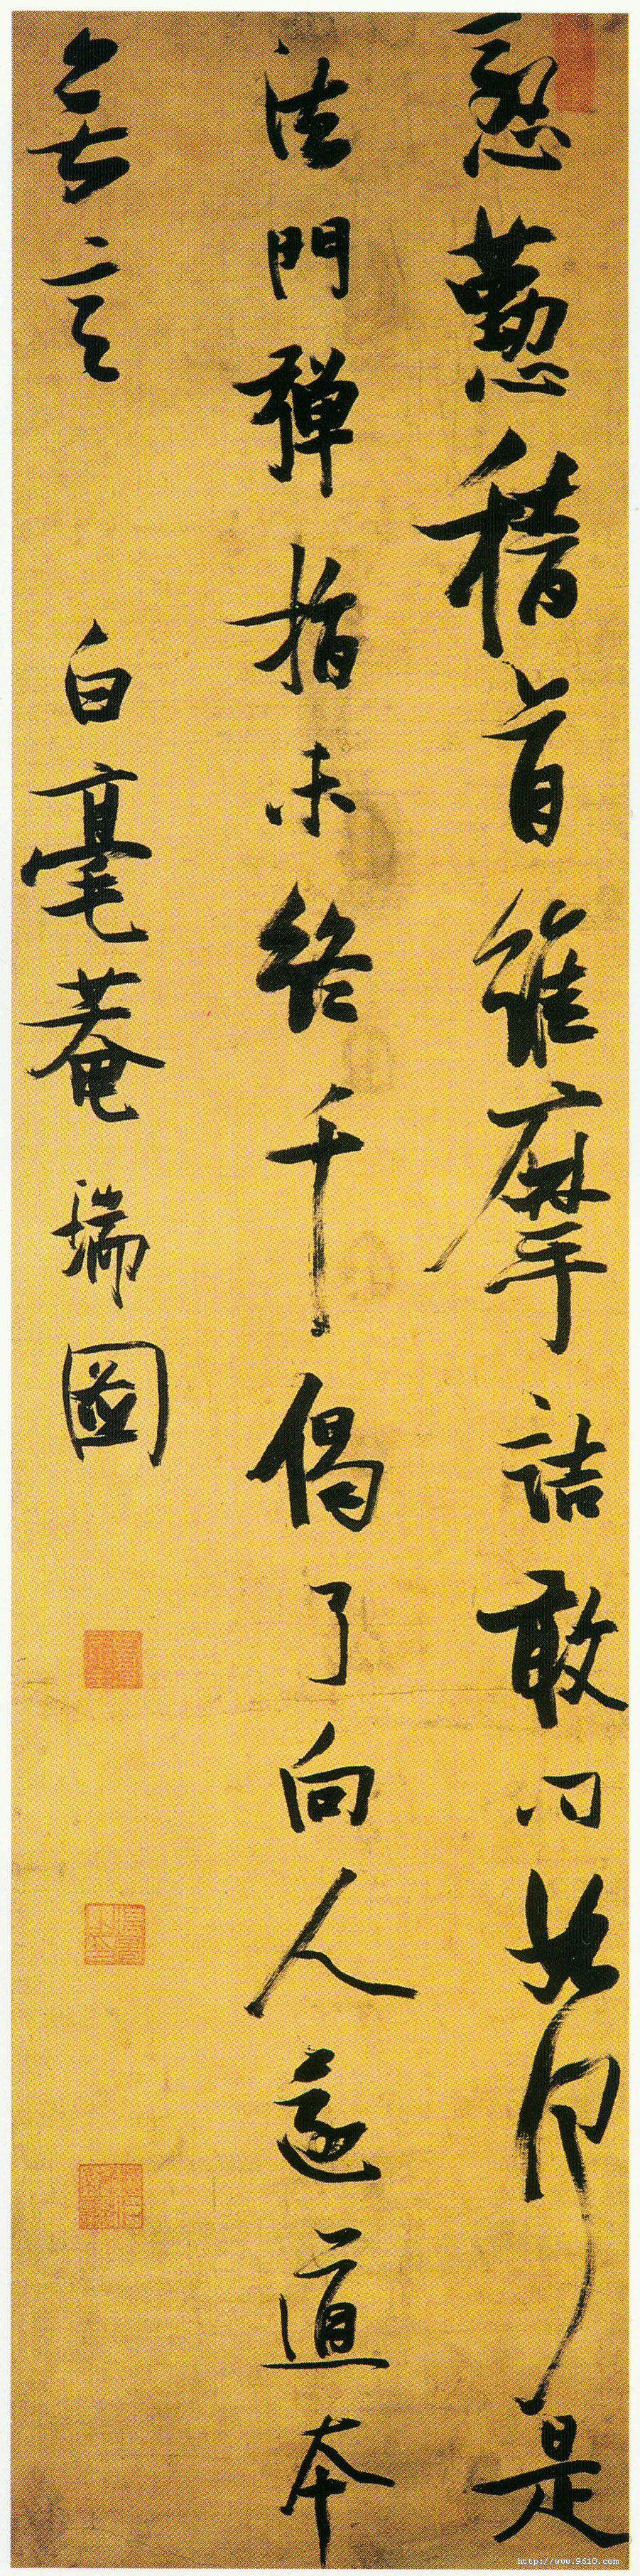 慇懃稽首維摩詰敢問如何是
法門彈指未終千偈了向人還道本
無言 白毫菴瑞圖
http://www.9610.com